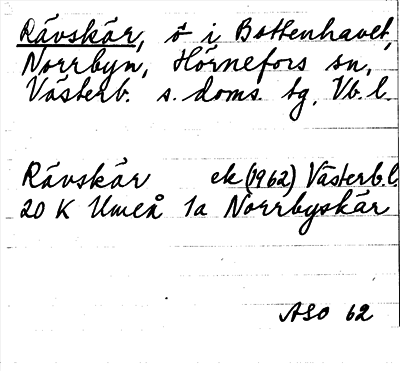 Rävskär, ö i Bottenhavet,
Norrbyn, Hörnefors sn,
Västerb. s. doms. tg, Vb. l.
Rävskär ek (1962) Västerb. l.
20 K Umeå 1a Norrbyskär
ASO 62